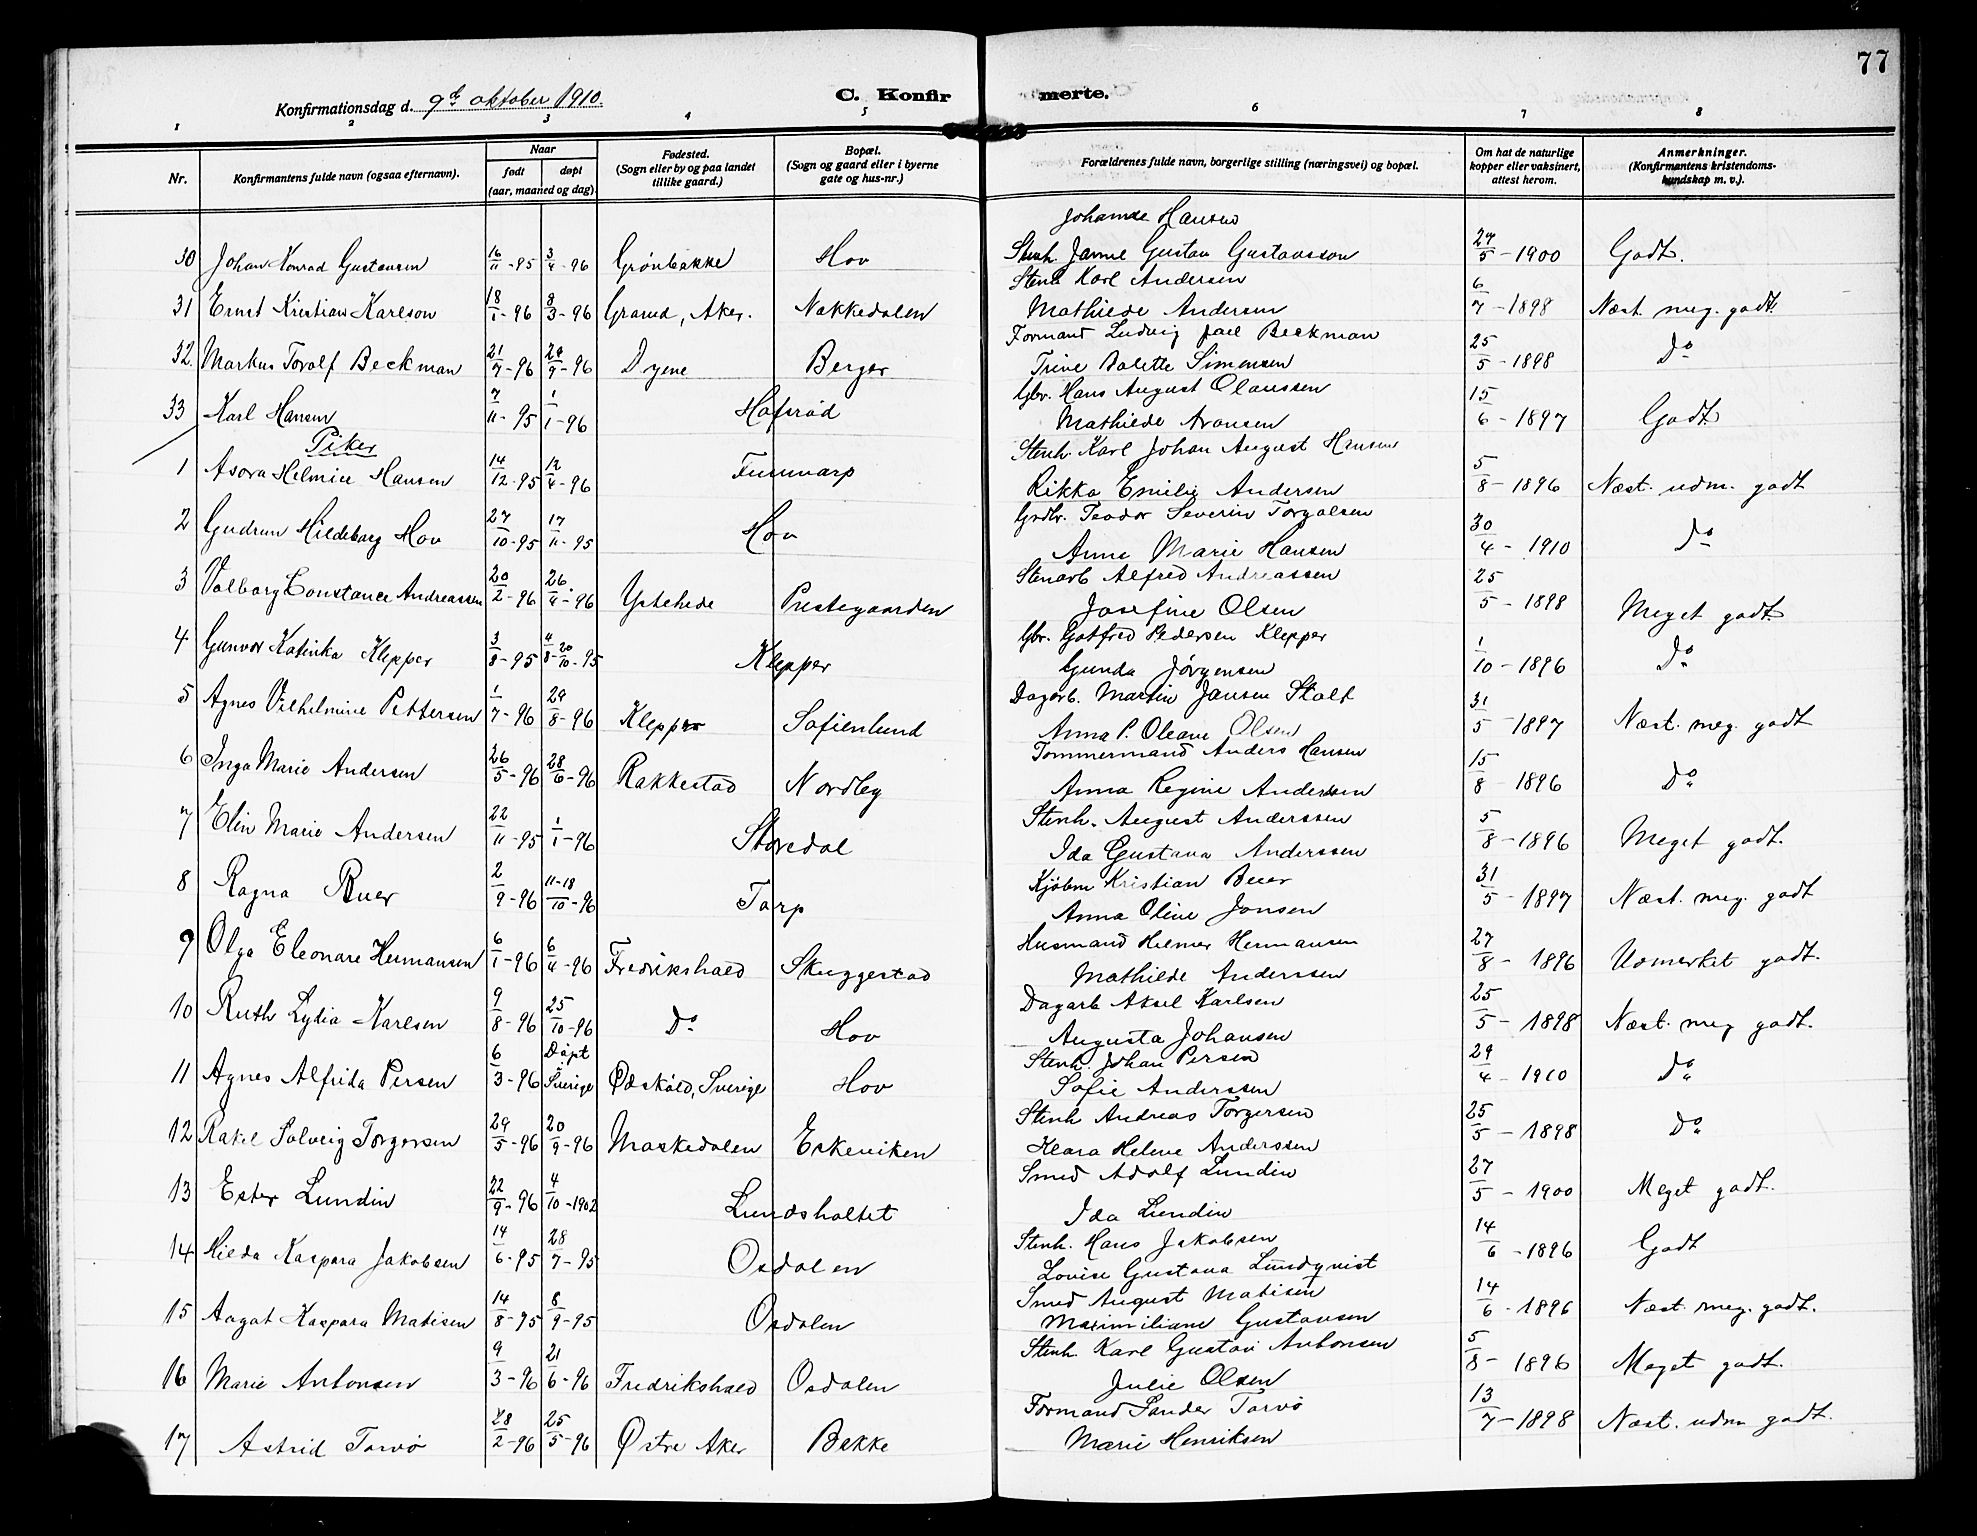 77
Konfirmationsdag d. 9de oktober 1910.
C. Konfirmerte.
1 2 3 4 5 6 7 8
Nr. Konfirmantens fulde navn (ogsaa efternavn). Naar født døpt (aar, maaned og dag). Fødested. (Sogn eller by og paa landet tillike gaard.) Bopæl. (Sogn og gaard eller i byerne gate og hus-nr.) Forældrenes fulde navn, borgerlige stilling (næringsvei) og bopæl. Om hat de naturlige kopper eller vaksinert, attest herom. Anmerkninger. (Konfirmantens kristendoms-kundskap m. v.).
Johanne Hansen
30 Johan Konrad Gustavsen 16/11-95 3/4-96 Grønbakke Hov Stenh. Janne Gustav Gustavsson 27/5-1900 Godt.
Stenh Karl Andersen
31 Ernst Kristian Karlson 18/1-96 8/3-96 Grorud, Aker. Nakkedalen Mathilde Andersen 6/7-1898 Næst. meg. godt.
Formand Ludvig Beckman
32. Markus Torolf Beckman 21/7-96 29/9-96 Dyene Berger Trine Valette Simensen 25/5-1898 Do
Gbr. Hans August Olaussen
33 Karl Hansen 7/11-95 1/1-96 Hafsrød Mathilde Aronsen 15/6-1897 Godt
Piker
Stenh. Karl Johan August Hansen
1 Asora Helmine Hansen 14/12-95 12/4-96 Tunnarp Rikka Emilie Andersen 5/8-1896 Næst. udm. godt
Grdbr. Teodor Severin Torgalsen
2 Gudrun Hildeborg Hov 27/10-95 17/11-95 Hov Anne Marie Hansen 30/4-1910 Do
Stenarb Alfred Andreassen
3 Valborg Constance Andreassen 20/2-96 26/4-96 Ystehede Prestegaarden Josefine Olsen 25/5-1898 Meget godt
Gbr. Gotfred Pedersen Klepper
4 Gunvor Katinka Klepper 3/8-95 4/8-20/10-95 Klepper Gunda Jørgensen 1/10-1896 Do
Dagarb. Martin Jansen Stolt
5 Agnes Vilhelmine Pettersen 1/7-96 29/8-96 Klepper Sofienlund Anna P. Oleane Olsen 31/5-1897 Næst. meg. godt
Tømmermand Anders Hansen
6 Inga Marie Andersen 26/5-96 28/6-96 Rakkestad Nordby Anna Regine Andersen 15/8-1896 Do
Stenh. August Anderssen
7 Elin Marie Andersen 22/11-95 1/1-96 Storedal Ida Gustava Anderssen 5/8-1896 Meget godt.
Kjøbm Kristian Buer
8 Ragna Buer 2/9-96 11-18/10-96 Torp Anna Oline Jonsen 31/5-1897 Næst. meg. godt
Husmand Hilmer Hermansen
9 Olga Eleonare Hermansen 6/1-96 6/4-96 Fredrikshald Skuggestad Mathilde Anderssen 27/8-1896 Udmerket godt.
Dagarb Aksel Karlsen
10 Ruth Lydia Karlsen 9/8-96 25/10-96 Do Hov Augusta Johansen 25/5-1898 Næst. meg godt.
Stenh. Johan Persen
11 Agnes Alfrida Persen 6/3-96 Døpt i Sverige Ødskøld, Sverige Hov Sofie Anderssen 29/4-1910 Do
Stenh Andreas Torgersen
12 Rakel Solveig Torgersen 29/5-96 20/9-96 Maskedalen Eskeviken Klara Helene Anderssen 25/5-1898 Do
Smed Adolf Lundin
13 Ester Lundin 22/9-96 4/10-1902 Lundsholtet Ida Lundin 27/5-1900 Meget godt.
Stenh. Hans Jakobsen
14 Hilda Kaspara Jakobsen 14/6-95 28/7-95 Osdalen Lovise Gustava Lundqvist 14/6-1896 Godt
Smed August Matisen
15 Aagot Kaspara Matisen 14/8-95 8/9-95 Osdalen Maximiliane Gustavsen 14/6-1896 Næst. meg. godt.
Stenh. Karl Gustav Antonsen
16 Marie Antonsen 9/3-96 21/6-96 Fredrikshald Osdalen Julie Olsen 5/8-1896 Meget godt.
Formand Sander Torvø
17 Astrid Torvø 28/2-96 25/5-96 Østre Aker Bakke Marie Henriksen 13/7-1898 Næst. udm godt.